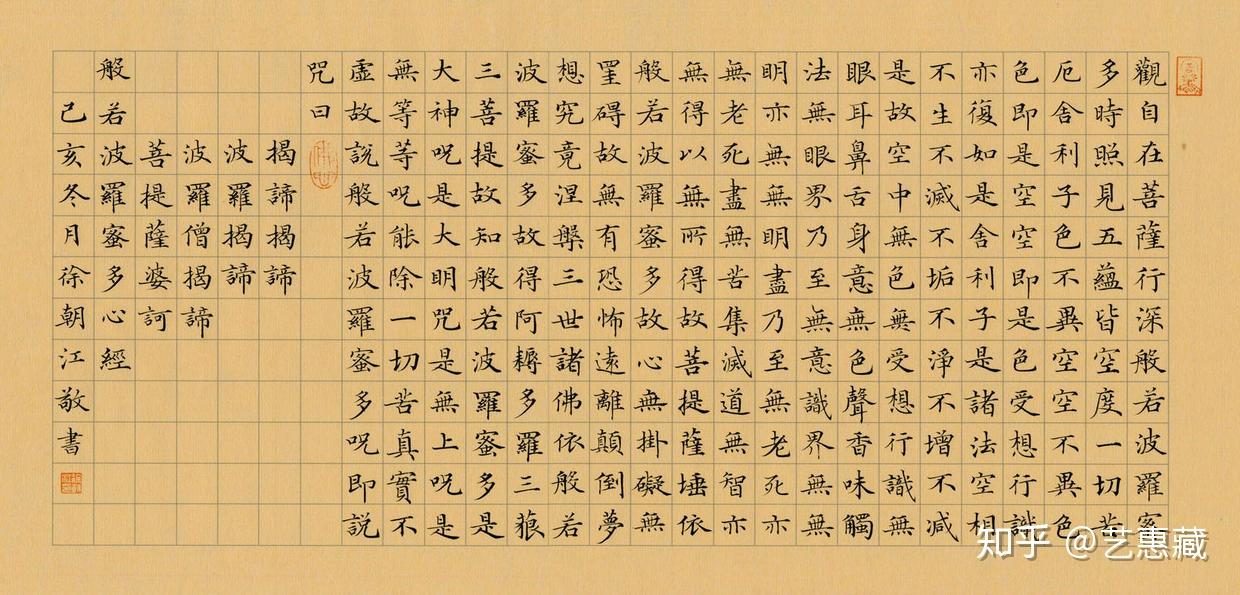 觀自在菩薩行深般若波羅蜜
多時照見五蘊皆空度一切苦
厄舍利子色不異空空不異色
色即是空空即是色受想行識
亦復如是舍利子是諸法空相
不生不滅不垢不淨不增不減
是故空中無色無受想行識無
眼耳鼻舌身意無色聲香味觸
法無眼界乃至無意識界無無
明亦無無明盡乃至無老死亦
無老死盡無苦集滅道無智亦
無得以無所得故菩提薩埵依
般若波羅蜜多故心無掛礙無
罣碍故無有恐怖遠離顛倒夢
想究竟涅槃三世諸佛依般若
波羅蜜多故得阿耨多羅三藐
三菩提故知般若波羅蜜多是
大神呪是大明咒是無上呪是
無等等呪能除一切苦真實不
虛故說般若波羅蜜多呪即説
咒曰
揭諦揭諦
波羅揭諦
波羅僧揭諦
菩提薩婆訶
般若波羅蜜多心經
己亥冬月徐朝江敬書
知乎 @艺惠藏